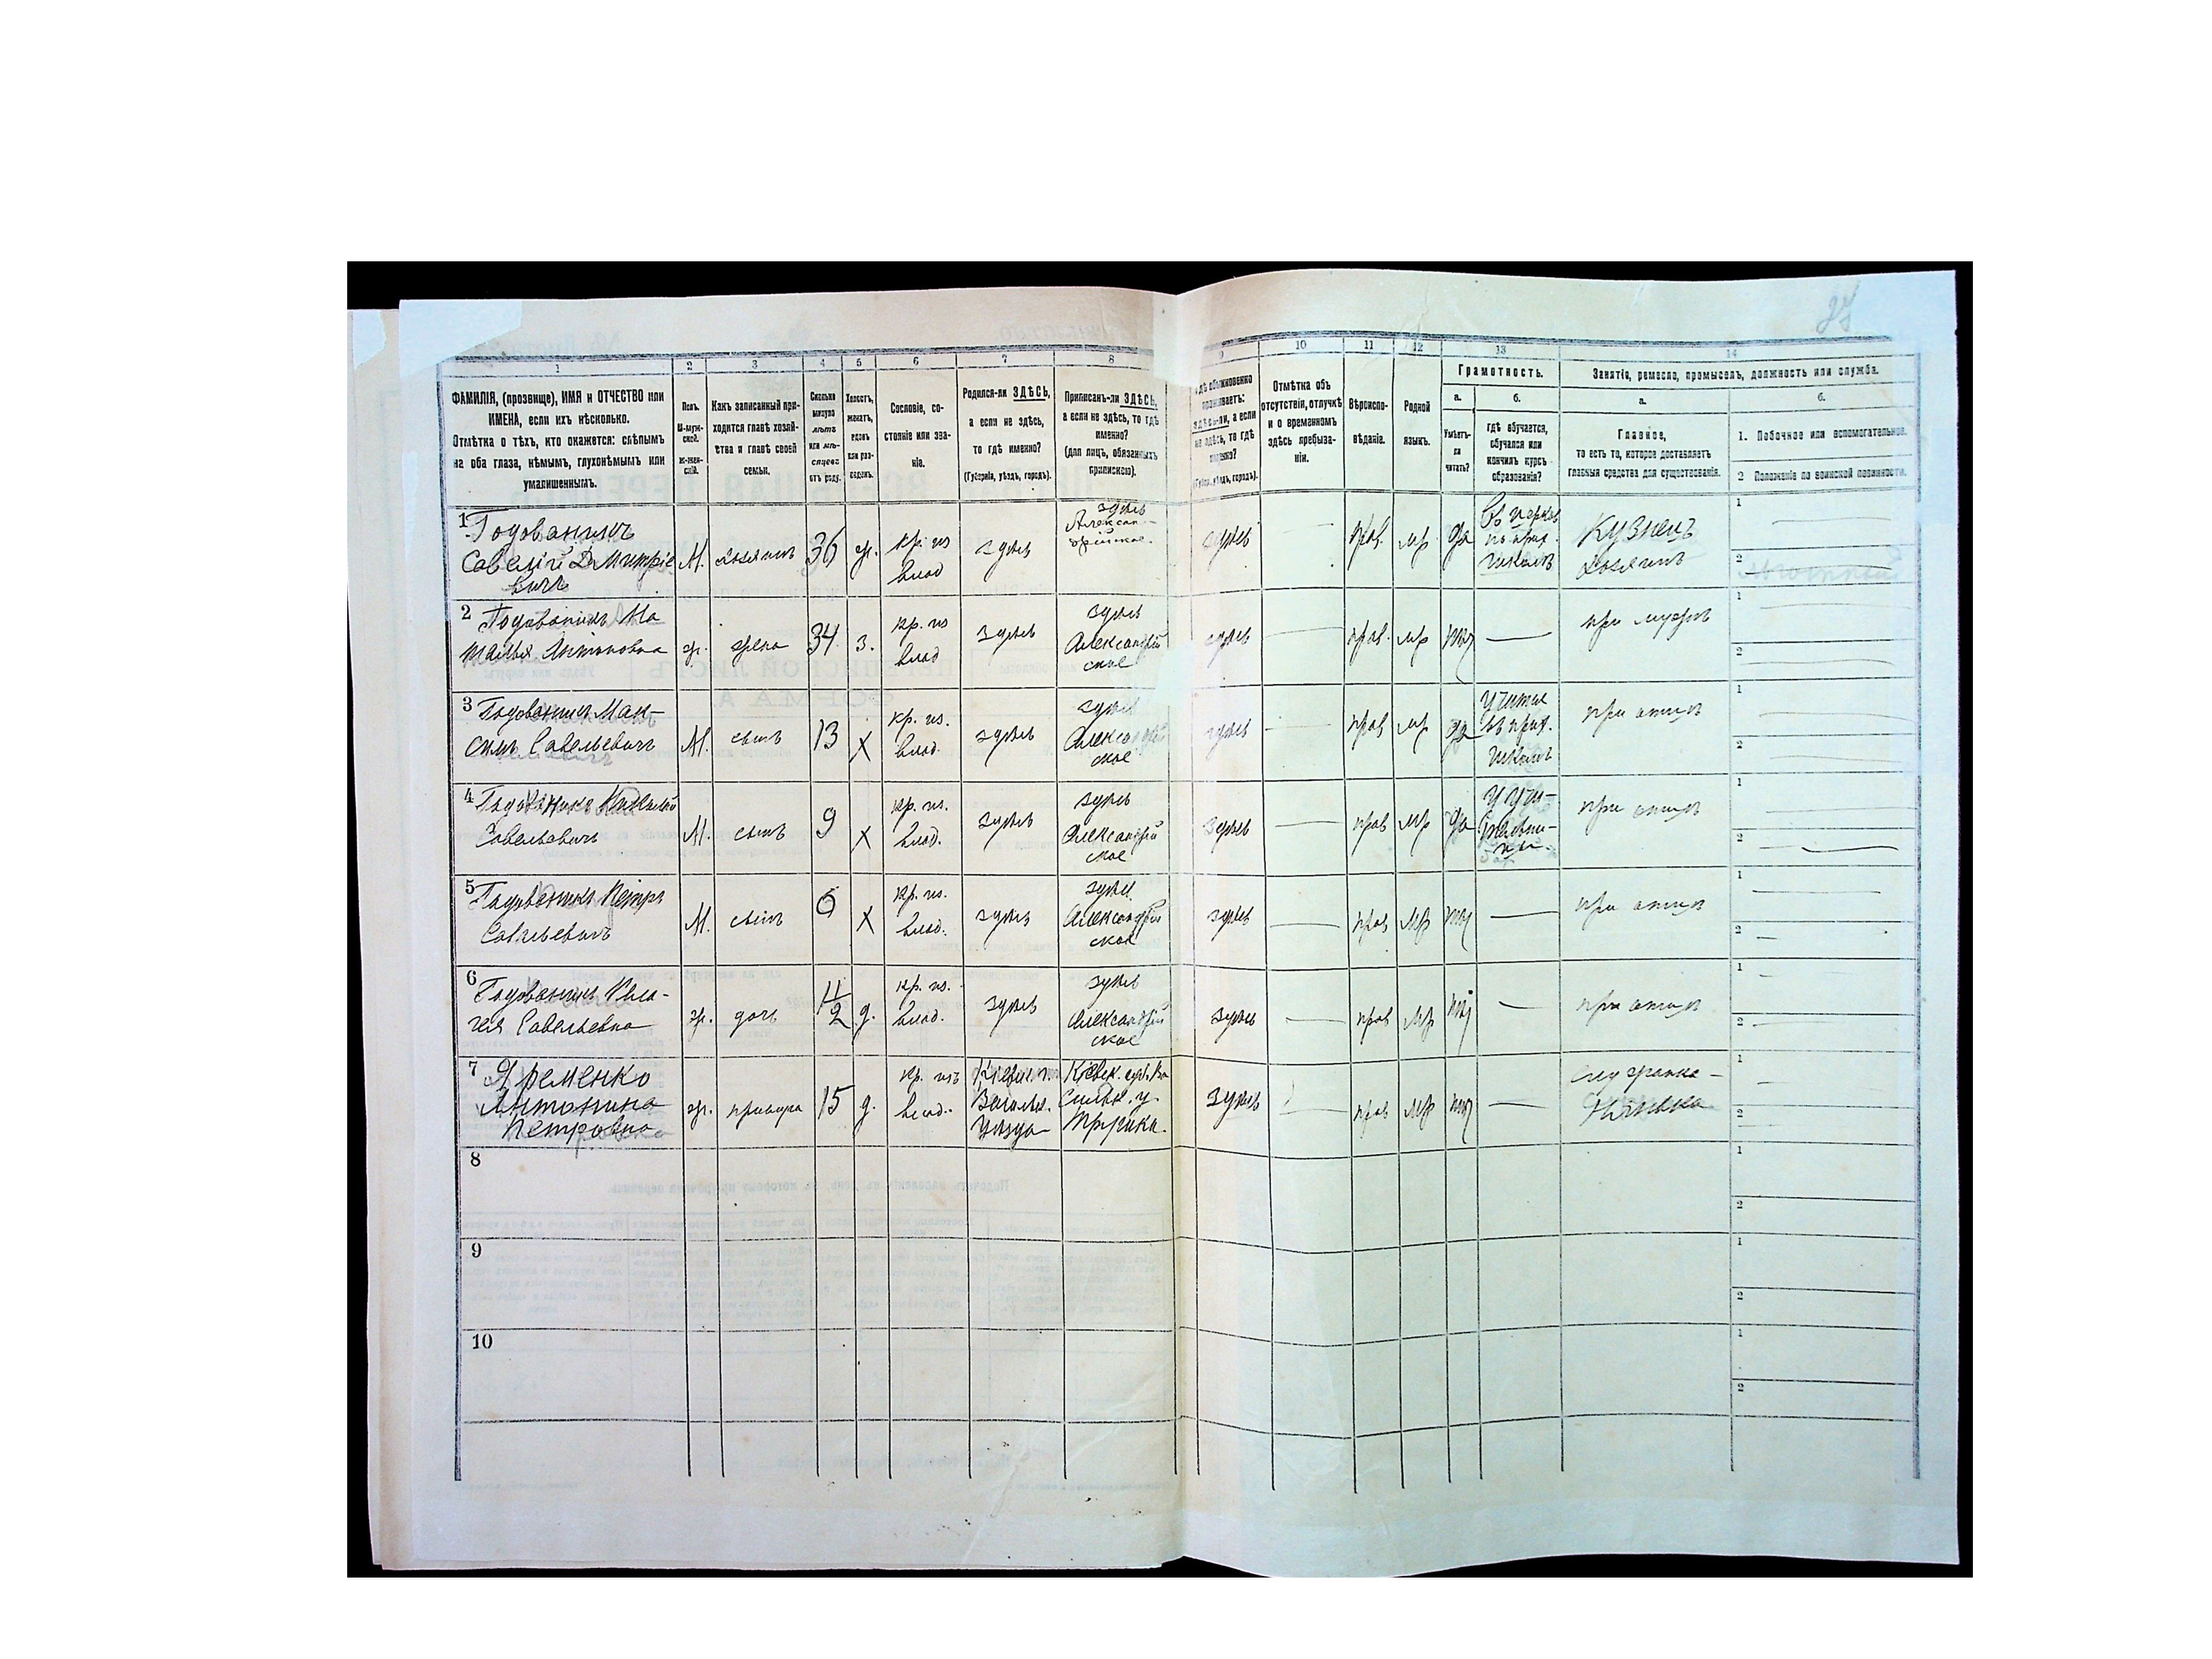 1 2 3 4 5 6 7 8 9 10 11 12 13 14
ФАМИЛІЯ, (прозвище), ИМЯ и ОТЧЕСТВО или
ИМЕНА, если ихъ нѣсколько.
Отмѣтка о тѣхъ, кто окажется: слѣпымъ
на оба глаза, нѣмымъ, глухонѣмымъ или
умалишеннымъ.
Полъ.
М-муж-
ской.
ж-жен-
скій.
Какъ записанный при-
ходится главѣ хозяй-
ства и главѣ своей
семьи.
Сколько
минуло
лѣтъ
или мѣ-
сяцевъ
отъ роду.
Холостъ,
женатъ,
вдовъ
или раз-
веденъ.
Сословіе, со-
стояніе или зва-
ніе.
Родился-ли ЗДѢСЬ,
а если не здѣсь,
то гдѣ именно?
(Губернія, уѣздъ, городъ).
Приписанъ-ли ЗДѢСЬ,
а если не здѣсь, то гдѣ
именно?
(для лицъ, обязанныхъ
припискою).
обыкновенно
проживаетъ:
здѣсь-ли, а если
не здѣсь, то гдѣ
именно?
уѣздъ, городъ).
Отмѣтка объ
отсутствіи, отлучкѣ
и о временномъ
здѣсь пребыва-
ніи.
Вѣроиспо-
вѣданіе.
Родной
языкъ.
Грамотность.
а.
Умѣетъ-
ли
читать?
б.
гдѣ обучается,
обучался или
кончилъ курсъ
образованія?
Занятія, ремесло, промыселъ, должность или служба.
а.
Главное,
то есть то, которое доставляетъ
главныя средства для существованія.
б.
1. Побочное или вспомогательное.
2 Положеніе по воинской повинности.
1 Годованикъ
Савелій Дмитріе
вичъ
М. хозяинъ 36 ж.
кр. из
влад
здѣсь
здѣсь
Алексан-
дрійское.
здѣсь
прав. мр да
школѣ
Кузнецъ
хозяинъ
1
2
2 Годованикъ На
талья Антоновна
ж. жена 34 з.
кр. из
влад
здѣсь
здѣсь
Александрій
ское
здѣсь
прав. мр нѣт
при мужѣ
1
2
3 Годованикъ Мак-
симъ Савельевичъ
М. сынъ 13 х
кр. из.
влад.
здѣсь
здѣсь
Александрій
ское
здѣсь
прав мр да
въ прих.
школѣ
при отцѣ
1
2
4 Годованикъ
Савельевичъ
М. сынъ 9 х
кр. из.
влад.
здѣсь
здѣсь
Александрій
ское
здѣсь
прав мр да
У учи-
тельни-
цы
при отцѣ
1
2
5 Годованикъ Петръ
Савельевичъ
М. сынъ 6 х
кр. из.
влад.
здѣсь
здѣсь
Александрій
ское
здѣсь
прав мр нѣт
при отцѣ
1
2
6 Годованикъ
Савельевна
ж. дочь д.
кр. из.
влад.
здѣсь
здѣсь
Александрій
ское
здѣсь
прав мр нѣт
при отцѣ
1
2
7 Яременко
Антонина
Петровна
ж. прислуга 15 д.
кр. изъ
влад.
Васильк.
уѣзда
Кіевск. губ.
здѣсь
прав мр нѣт
1
2
8
1
2
9
1
2
10
1
2